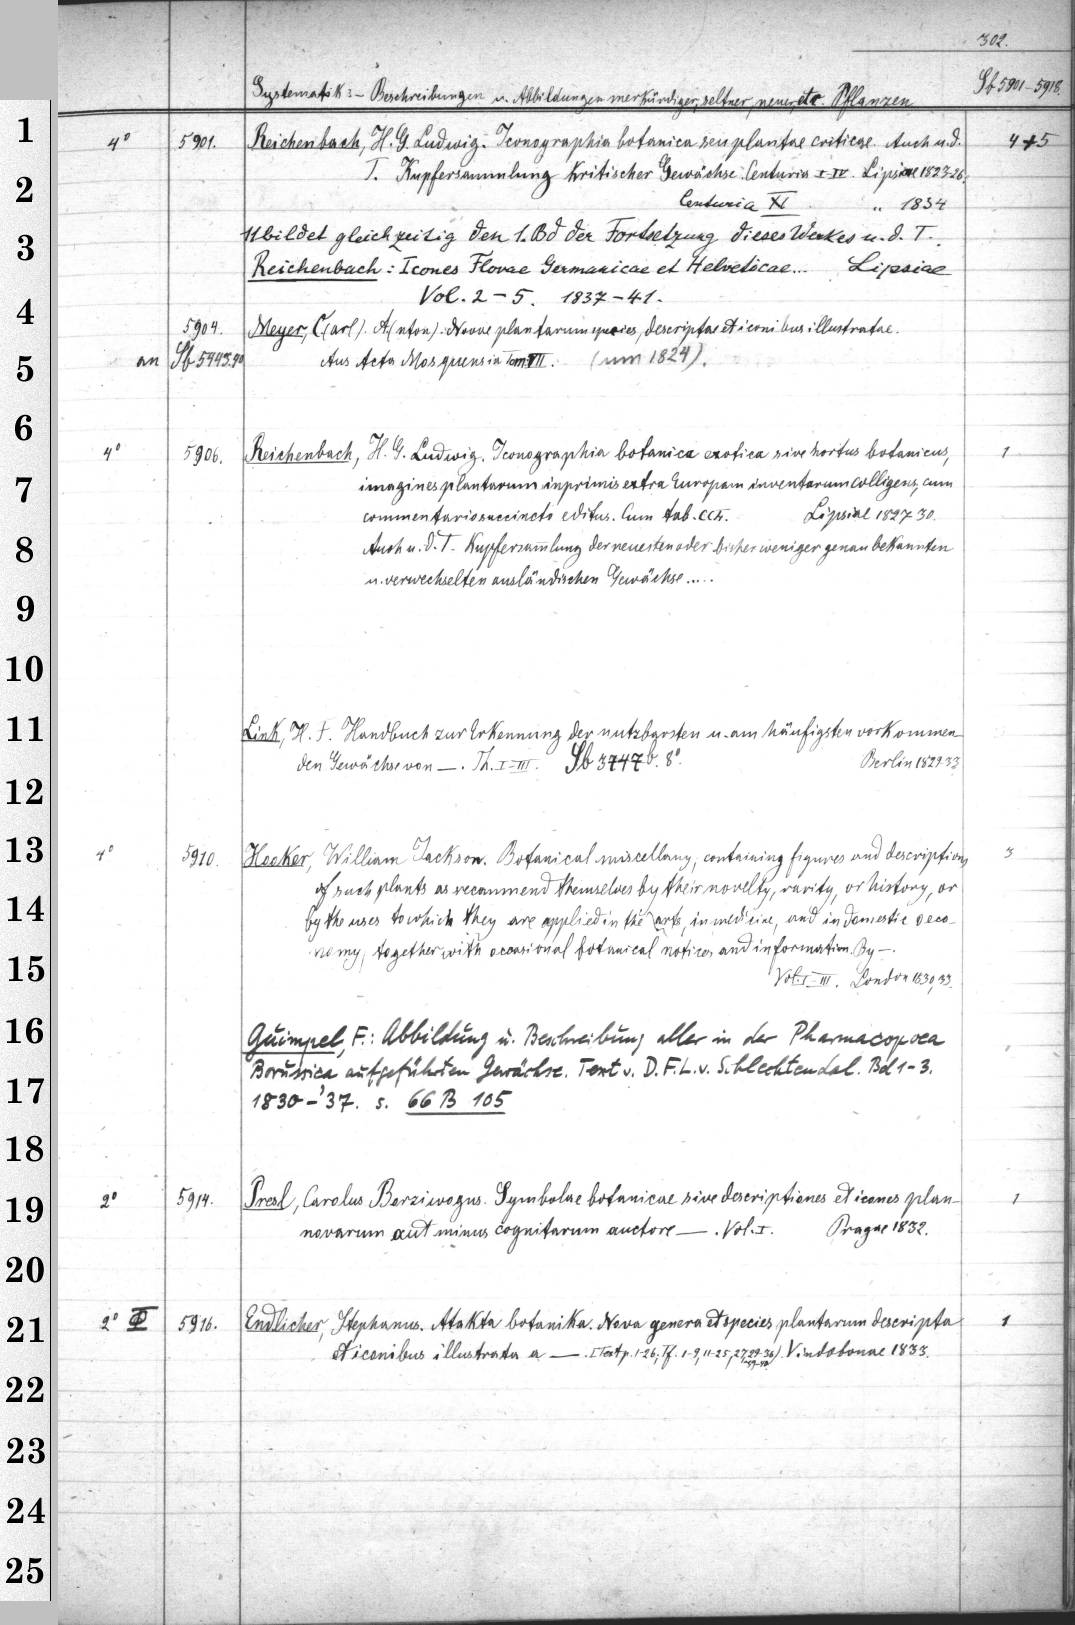 302.
Systematik :- Beschreibungen u. Abbildungen merkürdiger, seltner, neuer etc. Pflanzen Sb 5901-5918.
1
4° 5901. Reichenbach, H. G. Ludwig. Iconographia botanica seu plantae criticae. Auch u. d. 4+5
T. Kupfersammlung kritischer Gewächse. Centuria I-IV. Lipsiae 1823-26.
2
Centuria XI " 1834
3
11 bildet gleichzeitig den 1. Bd der Fortsetzung dieses Werkes u. d. T.
Reichenbach: Icones Florae Germanicae et Helveticae... Lipsiae
4
Vol. 2-5. 1837-41.
5904. Meyer, C(arl). A(nton). Novae plantarum species, descriptae et iconibus illustratae.
5
an Sb 5443.90 Aus Acta Mosquensia Tom VII. (um 1824).
6
4° 5906. Reichenbach, H. G. Ludwig. Iconographia botanica exotica sive hortus botanicus, 1
7
imagines plantarum inprimis extra Europam inventarum colligens, cum
commentario succincto editus. Cum tab. Lipsiae 1827-30.
8
Auch u. d. T. Kupfersammlung der neuesten oder bisher weniger genau bekannten
u. verwechselten ausländischen Gewächse.....
9
10
11
Link, H. F. Handbuch zur Erkennung der nutzbarsten u. am häufigsten vorkommen
den Gewächse von —. Th. I-III. Sb 3747 b. 8°. Berlin 1829-33
12
13
4° 5910. Hooker, William Jackson. Botanical miscellany, containing figures and descriptions 3
14
of such plants as recommend themselves by their novelty, rarity, or history, or
by the uses to which they are applied in the arts, in medicine, and in domestic oeco-
15
nomy, together with occasional botanical notices and information. By —.
Vol. I-III. London 1830,33.
16
Guimpel, F.: Abbildung u. Beschreibung aller in der Pharmacopoea
17
Borussica aufgeführten Gewächse. Text v. D. F. L. v. Schlechtendal. Bd 1-3.
1830-'37. s. 66 B 105
18
19
2° 5914. Presl, Carolus Borziwogus. Symbolae botanicae sive descriptiones et icones plan- 1
novarum aut minus cognitarum auctore —. Vol. I. Pragae 1832.
20
21
2° 5916. Endlicher, Stephanus. Atakta botanika. Nova genera et species plantarum descripta 1
22
et iconibus illustrata a —. (Text p. 1-26; Tf. 1-9, 11-25, 27, 29-36) Vindobonae 1833.
23
24
25